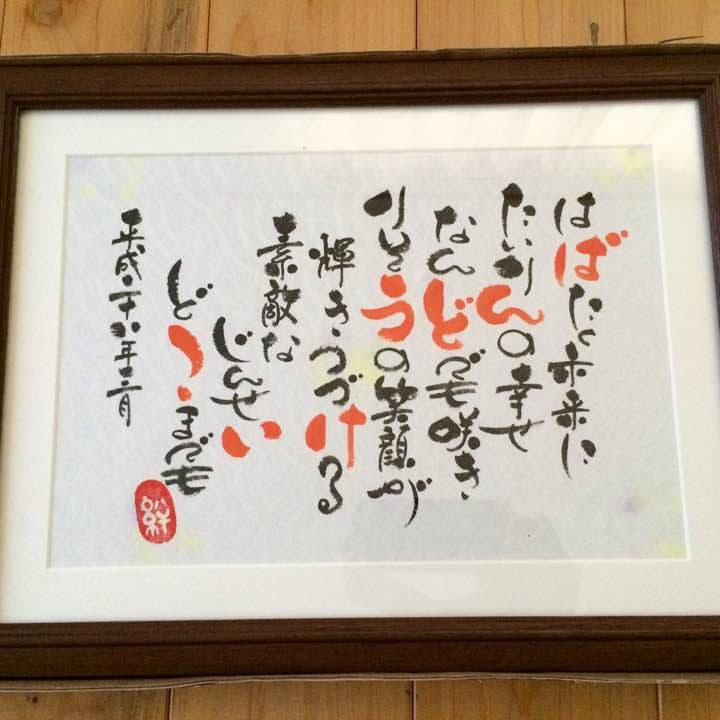 はばたく未来に
たいりんの幸せ
なんどでも咲き
りそうの笑顔が
輝きつづける
素敵な
じんせい
どこまでも
平成二十八年三月
絆